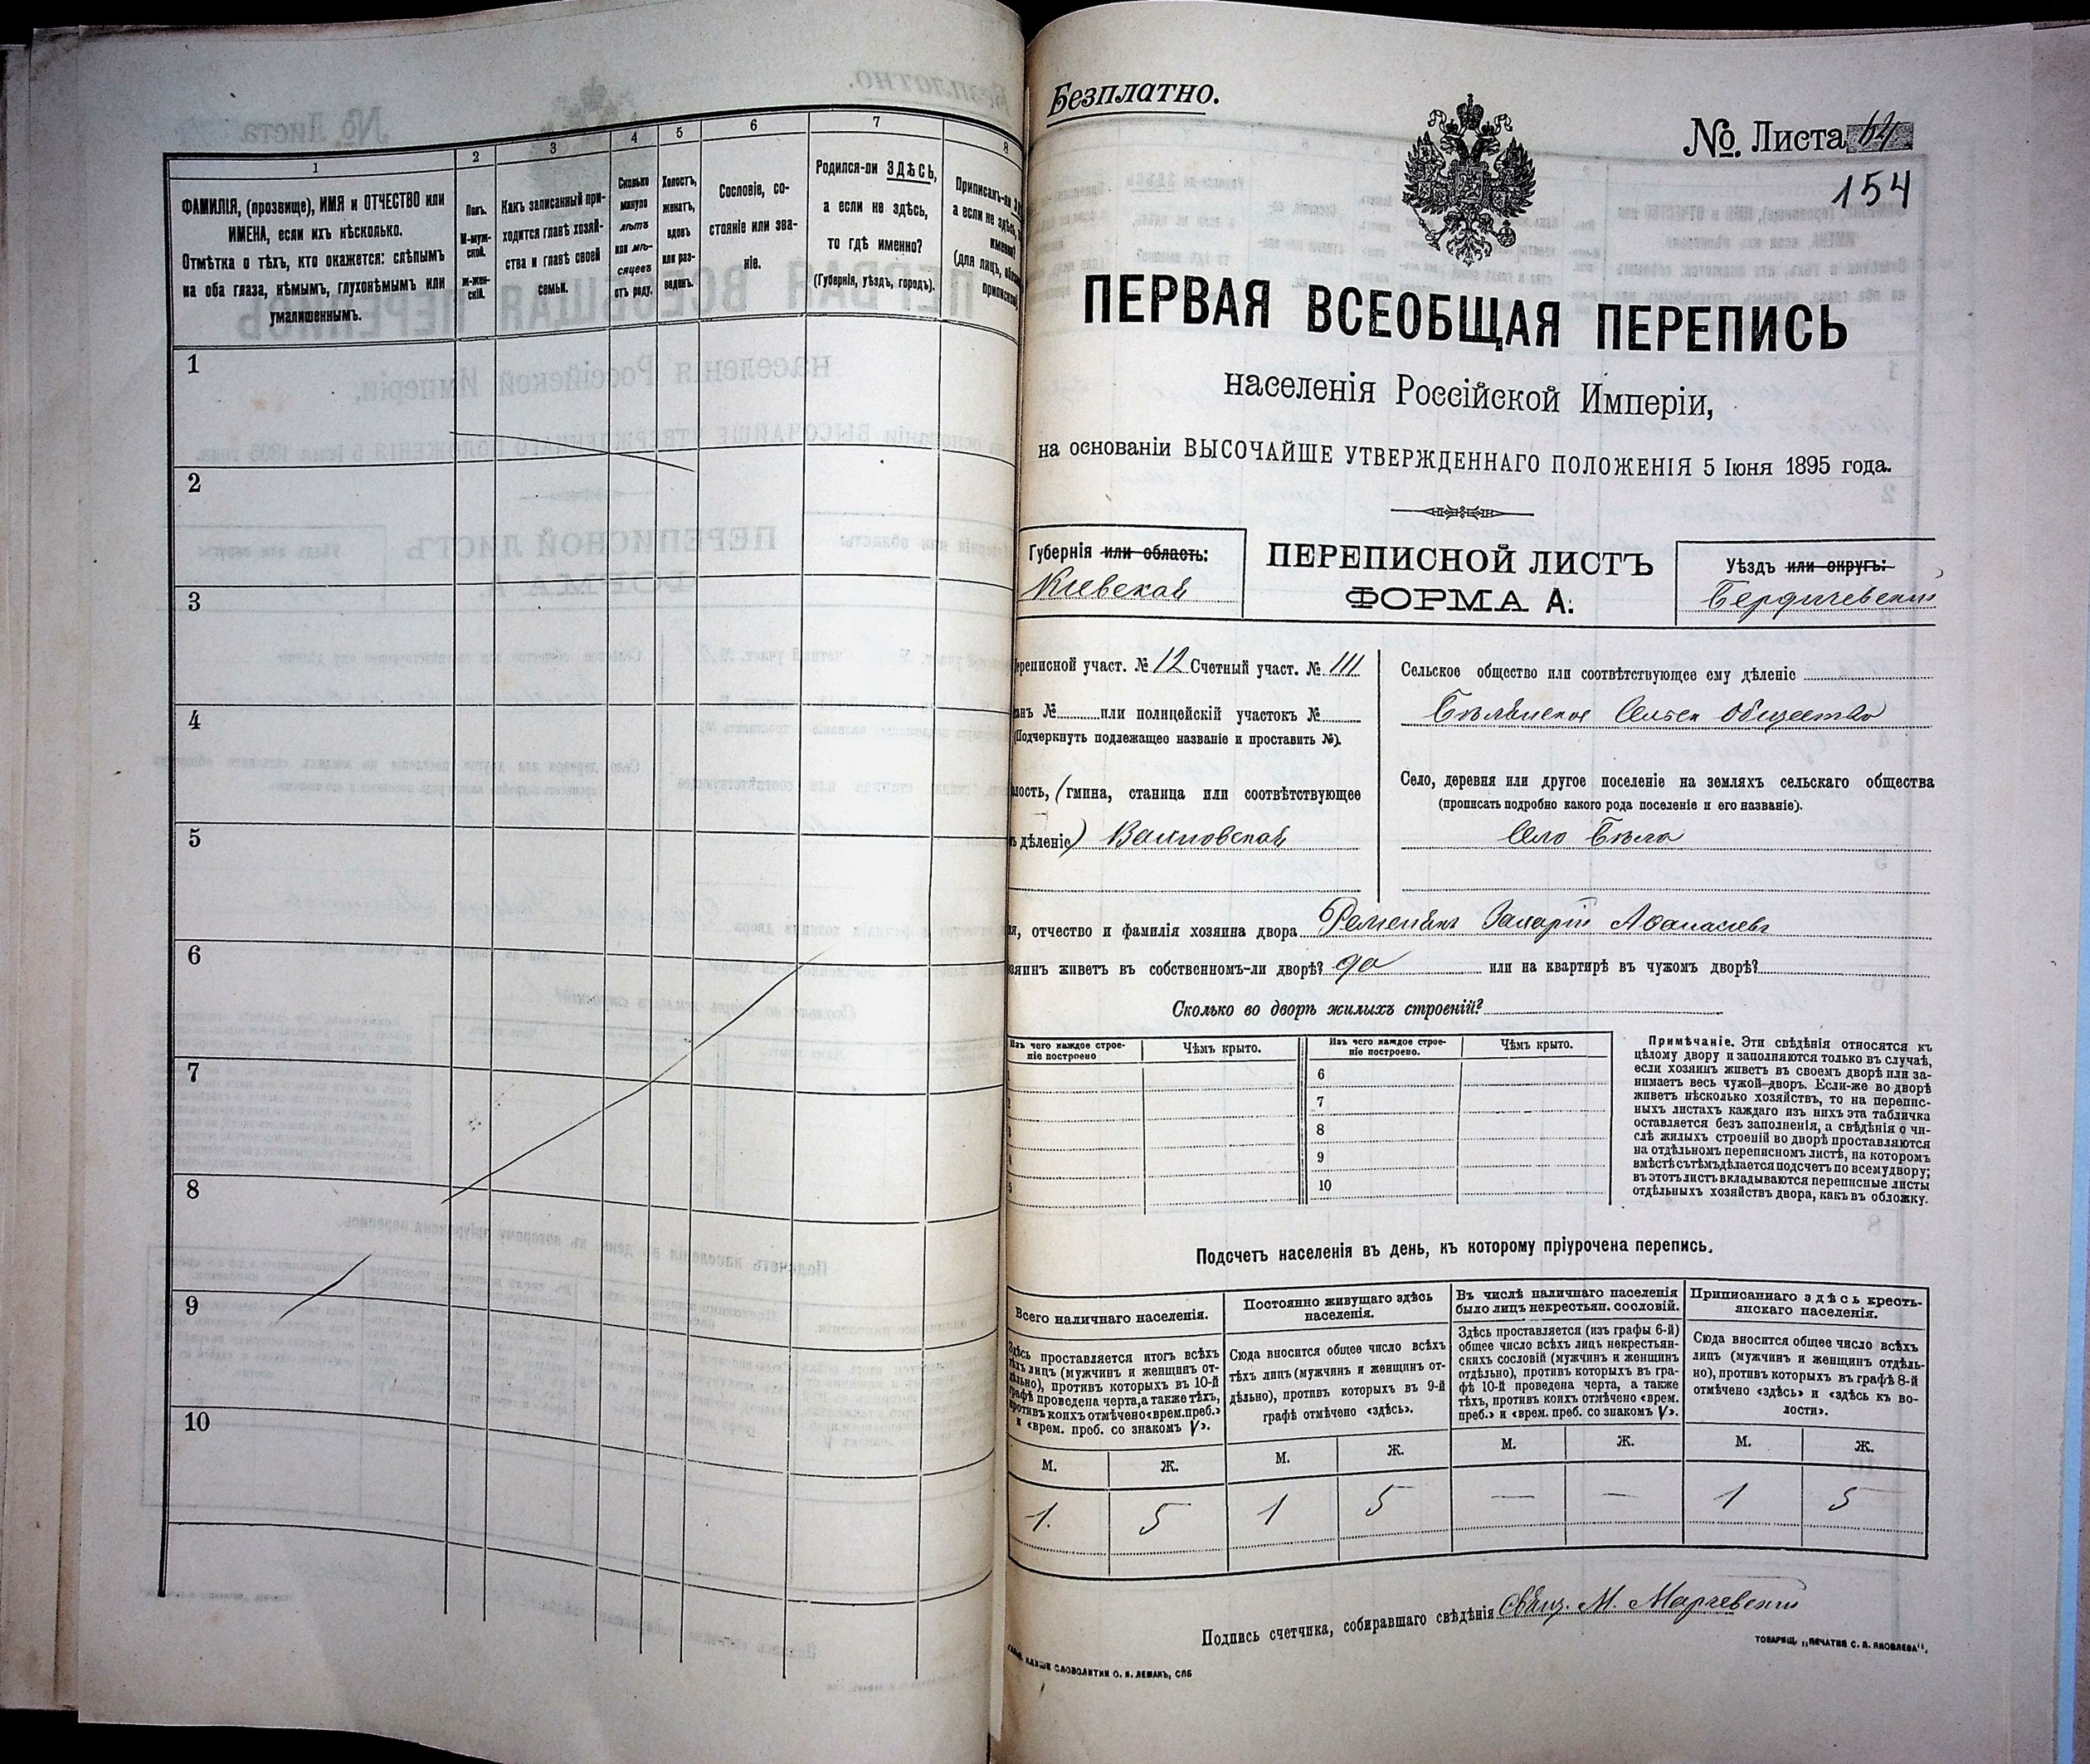 1
2
3
4
5
6
7
8
ФАМИЛІЯ, (прозвище), ИМЯ и ОТЧЕСТВО или
ИМЕНА, если ихъ нѣсколько.
Отмѣтка о тѣхъ, кто окажется: слѣпымъ
на оба глаза, нѣмымъ, глухонѣмымъ или
умалишеннымъ.
Полъ.
М-муж-
ской.
Ж-жен-
скій.
Какъ записанный при-
ходится главѣ хозяй-
ства и главѣ своей
семьи.
Сколько
минуло
лѣтъ
или мѣ-
сяцевъ
отъ роду.
Холостъ,
женатъ,
вдовъ
или раз-
веденъ.
Сословіе, со-
стояніе или зва-
ніе.
Родился-ли ЗДѢСЬ,
а если не здѣсь,
то гдѣ именно?
(Губернія, уѣздъ, городъ).
Приписанъ-ли
а если не здѣсь,
(для лицъ,
1
2
3
4
5
6
7
8
9
10
Безплатно.
№ Листа 64
154
ПЕРВАЯ ВСЕОБЩАЯ ПЕРЕПИСЬ
населенія Россійской Имперіи,
на основаніи ВЫСОЧАЙШЕ УТВЕРЖДЕННАГО ПОЛОЖЕНІЯ 5 Іюня 1895 года.
Губернія или область:
Кіевская
ПЕРЕПИСНОЙ ЛИСТЪ
ФОРМА А.
Уѣздъ или округъ:
Бердичевскій
переписной участ. № 12 Счетный участ. № 111
анъ № или полицейскій участокъ №
(Подчеркнуть подлежащее названіе и проставить №).
лость, (гмина, станица или соотвѣтствующее
ъ дѣленіе)
Сельское общество или соотвѣтствующее ему дѣленіе
Сельск Общество
Село, деревня или другое поселеніе на земляхъ сельскаго общества
(прописать подробно какого рода поселеніе и его названіе).
Село Бѣла
я, отчество и фамилія хозяина двора Захарій Аѳанасіевъ
зяинъ живетъ въ собственномъ-ли дворѣ? да или на квартирѣ въ чужомъ дворѣ?
Сколько во дворѣ жилыхъ строеній?
Изъ чего каждое строе-
ніе построено
Чѣмъ крыто.
Изъ чего каждое строе-
ніе построено.
Чѣмъ крыто.
6
7
8
9
10
Примѣчаніе. Эти свѣдѣнія относятся къ
цѣлому двору и заполняются только въ случаѣ,
если хозяинъ живетъ въ своемъ дворѣ или за-
нимаетъ весь чужой дворъ. Если-же во дворѣ
живетъ нѣсколько хозяйствъ, то на перепис-
ныхъ листахъ каждаго изъ нихъ эта табличка
оставляется безъ заполненія, а свѣдѣнія о чи-
слѣ жилыхъ строеній во дворѣ проставляются
на отдѣльномъ переписномъ листѣ, на которомъ
вмѣстѣ съ тѣмъ дѣлается подсчетъ по всему двору;
въ этотъ листъ вкладываются переписные листы
отдѣльныхъ хозяйствъ двора, какъ въ обложку.
Подсчетъ населенія въ день, къ которому пріурочена перепись.
Всего наличнаго населенія.
Здѣсь проставляется итогъ всѣхъ
тѣхъ лицъ (мужчинъ и женщинъ от-
дѣльно), противъ которыхъ въ 10-й
графѣ проведена черта, а также тѣхъ,
противъ коихъ отмѣчено «врем. преб.»
и «врем. проб. со знакомъ V».
Постоянно живущаго здѣсь
населенія.
Сюда вносится общее число всѣхъ
тѣхъ лицъ (мужчинъ и женщинъ от-
дѣльно), противъ которыхъ въ 9-й
графѣ отмѣчено «здѣсь».
Въ числѣ наличнаго населенія
было лицъ некрестьян. сословій.
Здѣсь проставляется (изъ графы 6-й)
общее число всѣхъ лицъ некрестьян-
скихъ сословій (мужчинъ и женщинъ
отдѣльно), противъ которыхъ въ гра-
фѣ 10-й проведена черта, а также
тѣхъ, противъ коихъ отмѣчено «врем.
преб.» и «врем. преб. со знакомъ V».
Приписаннаго здѣсь кресть-
янскаго населенія.
Сюда вносится общее число всѣхъ
лицъ (мужчинъ и женщинъ отдѣль-
но), противъ которыхъ въ графѣ 8-й
отмѣчено «здѣсь» и «здѣсь къ во-
лости».
М. Ж. М. Ж. М. Ж. М. Ж.
1. 5 1 5 — — 1 5
Подпись счетчика, собиравшаго свѣдѣнія Свящ. М.
СЛОВОЛИТНИ О. И. ЛЕМАНЪ, СПБ
ТОВАРИЩ. „ПЕЧАТНЯ С. П. ЯКОВЛЕВА".